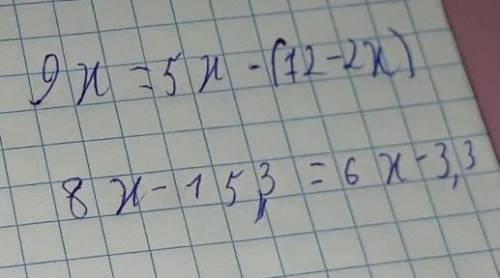 9x = 5x - (12 - 2x)
8x - 15,3 = 6x - 3,3